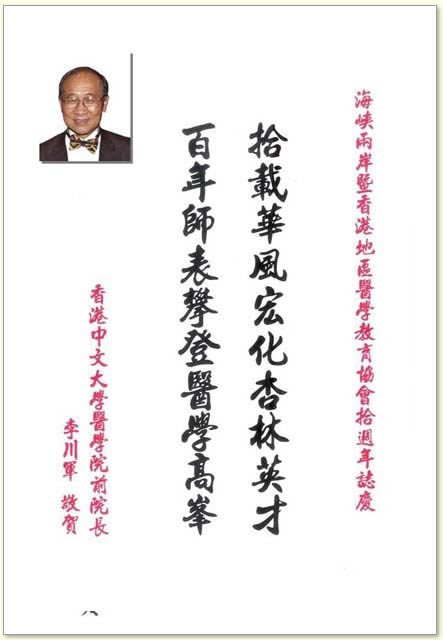 海峽兩岸暨香港地區醫學教育協會拾週年誌慶
拾載華風宏化杏林英才
百年師表攀登醫學高峯
香港中文大學醫學院前院長
李川軍 敬賀